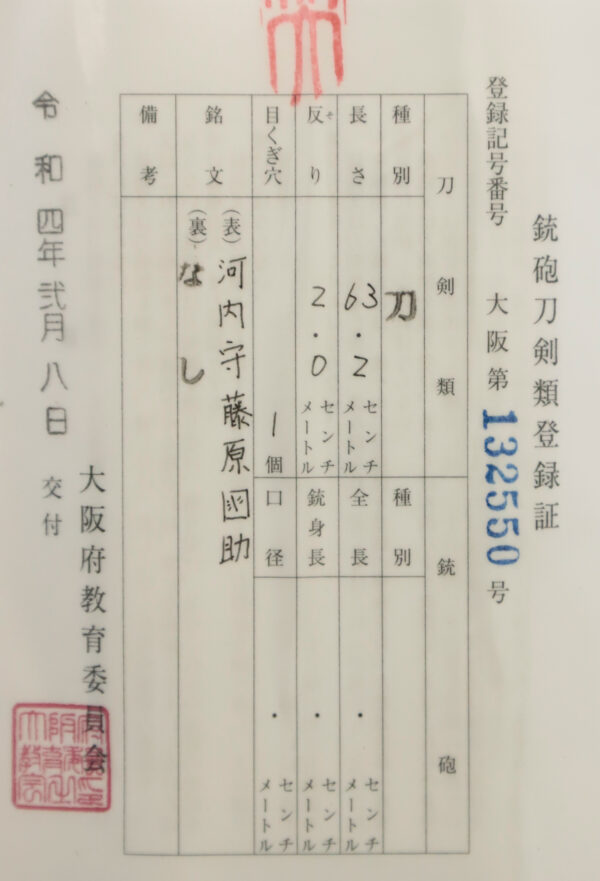 銃砲刀剣類登録証
登録記号番号 大阪第 132550 号
刀剣類
種別 刀
長さ 63.2 センチメートル
反り 2.0 センチメートル
そ
目くぎ穴 1個
銘文 (表) 河内守藤原國助
(裏) なし
備考
銃砲
種別
全長 . センチメートル
銃身長 . センチメートル
口径 . センチメートル
令和四年弐月八日 交付
大阪府教育委員会